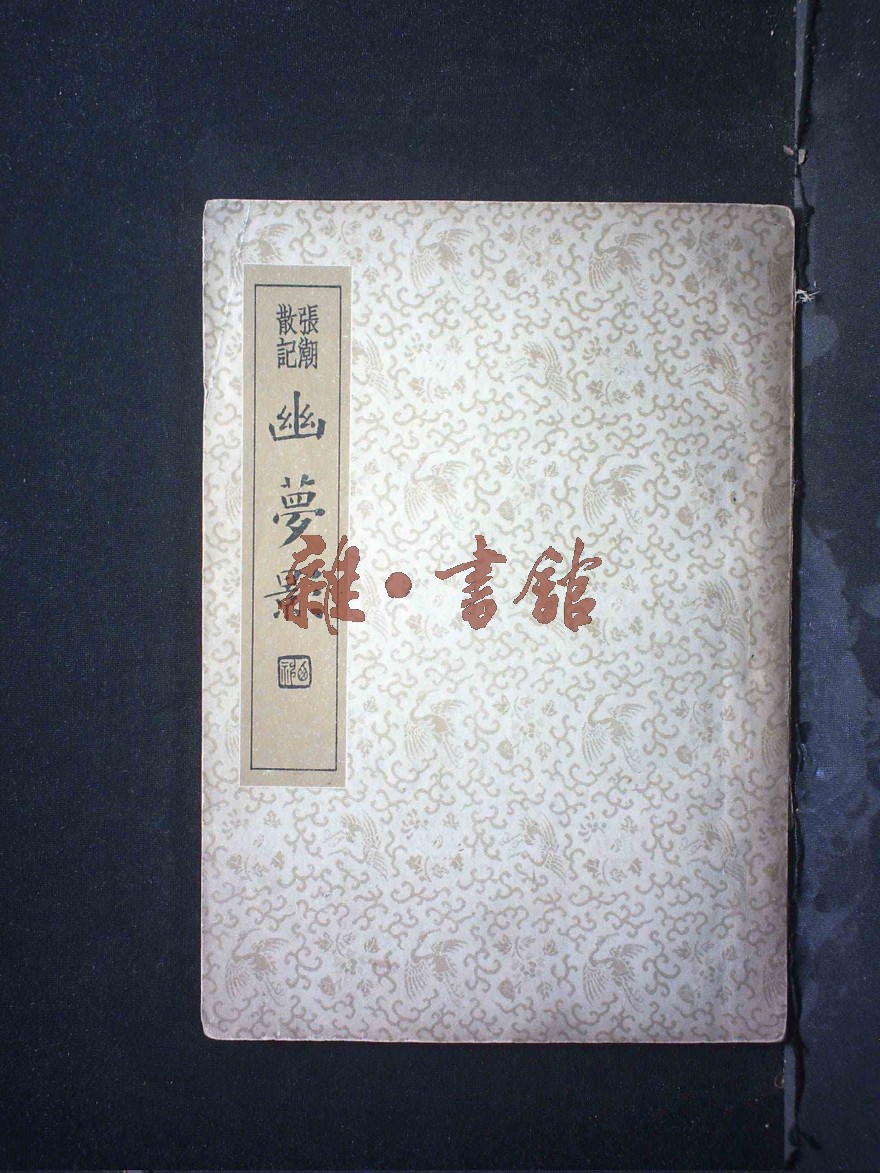 張潮
散記
幽夢影
雜·書館